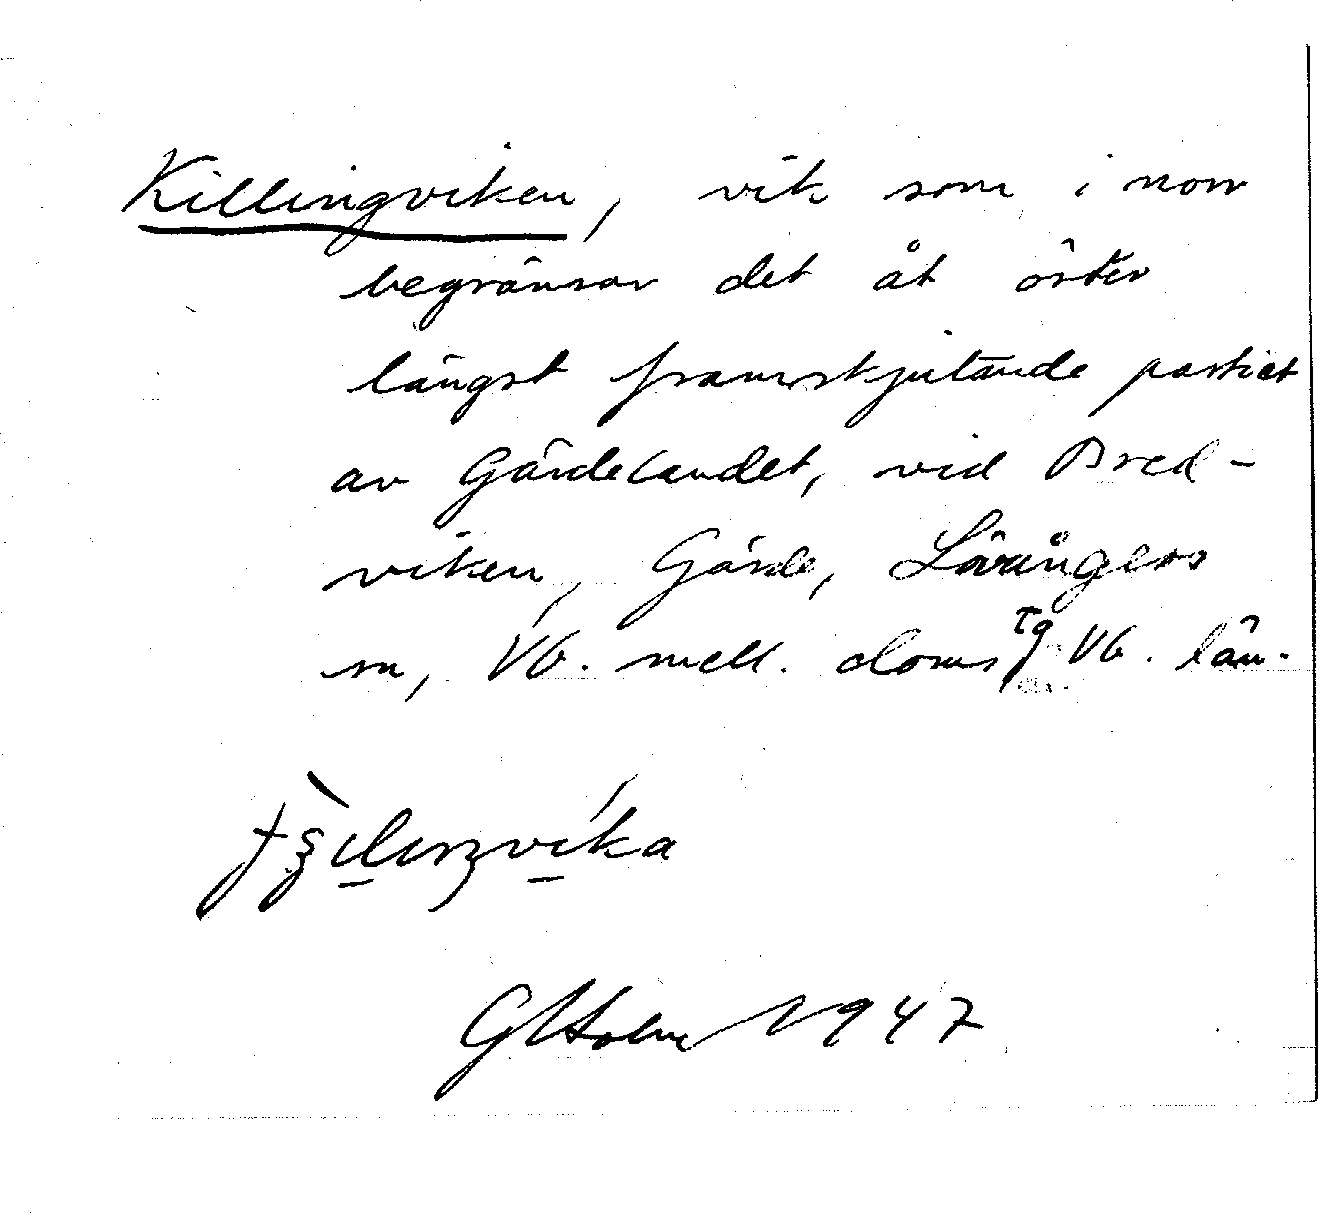 Killingviken, vik som i norr
begränsar det åt öster
längst framskjutande partiet
av Gärdelandet, vid Bred-
viken, Gärde, Lövångers
sn, Vb. mell. doms Vb. län.
G Holm 1947